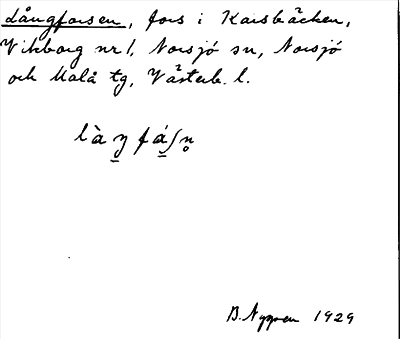 Långforsen, fors i Karsbäcken,
Vikborg nr 1, Norsjö sn, Norsjö
och Malå tg, Västerb. l.
B. Nygren 1929